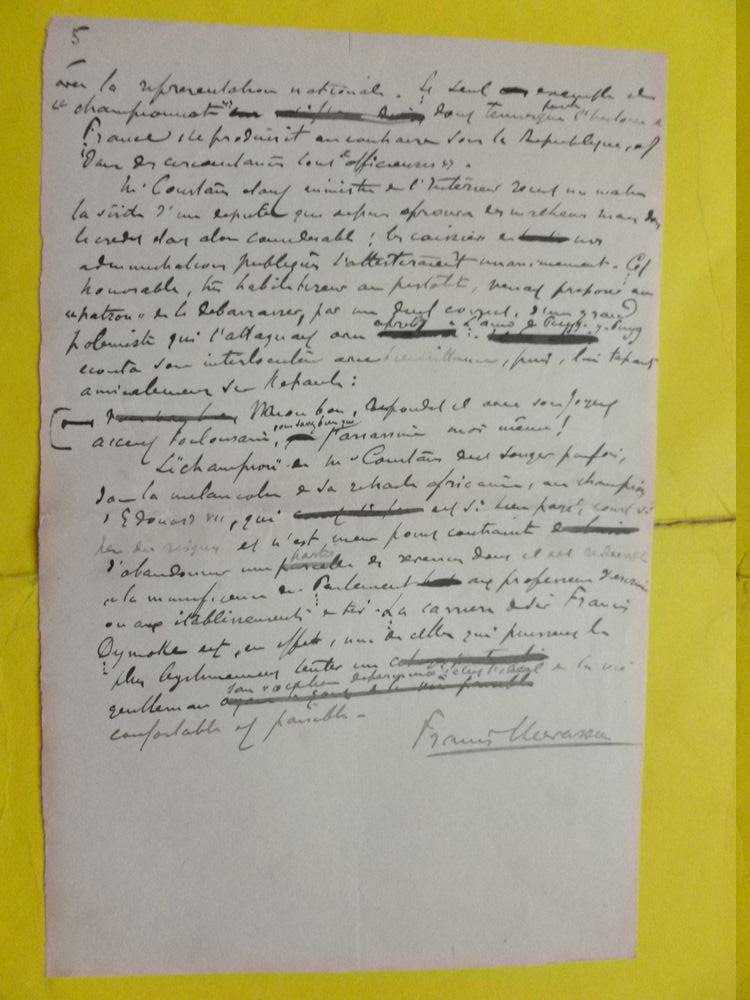 5
avec la représentation nationale. Le seul exemple de
"championnat" dont témoigne toute l'histoire de
France se produisit au contraire sous la République, et
dans des circonstances tout "officieuses".
M. Constans alors ministre de l'Intérieur reçut un matin
la visite d'un député qui depuis éprouva des malheurs mais dont
le crédit était alors considérable ; les caissiers de nos
administrations publiques l'attesteraient unanimement. Cet
honorable, très habile tireur au pistolet, venait proposer au
"patron" de le débarrasser, par un duel correct, d'un grand
polémiste qui l'attaquait avec âpreté. L'ami de Puyg-y-Puyg
écouta son interlocuteur avec bienveillance, puis, lui tapant
amicalement sur l'épaule :
Mon bon, répondit il avec son joyeux
accent toulousain, j'assassine moi même !
Le "champion" de M. Constans doit songer parfois,
dans la mélancolie de sa retraite africaine, au champion
d'Edouard VII, qui est si bien payé, court si
peu de risques et n'est même point contraint
d'abandonner une partie des revenus dont il est redevable
à la munificence du Parlement aux professeurs d'escrime
ou aux établissements de tir. La carrière de Sir Francis
Dymoke est, en effet, une de celles qui puissent le
plus légitimement tenter un
gentleman de la vie
confortable et paisible.
Francis